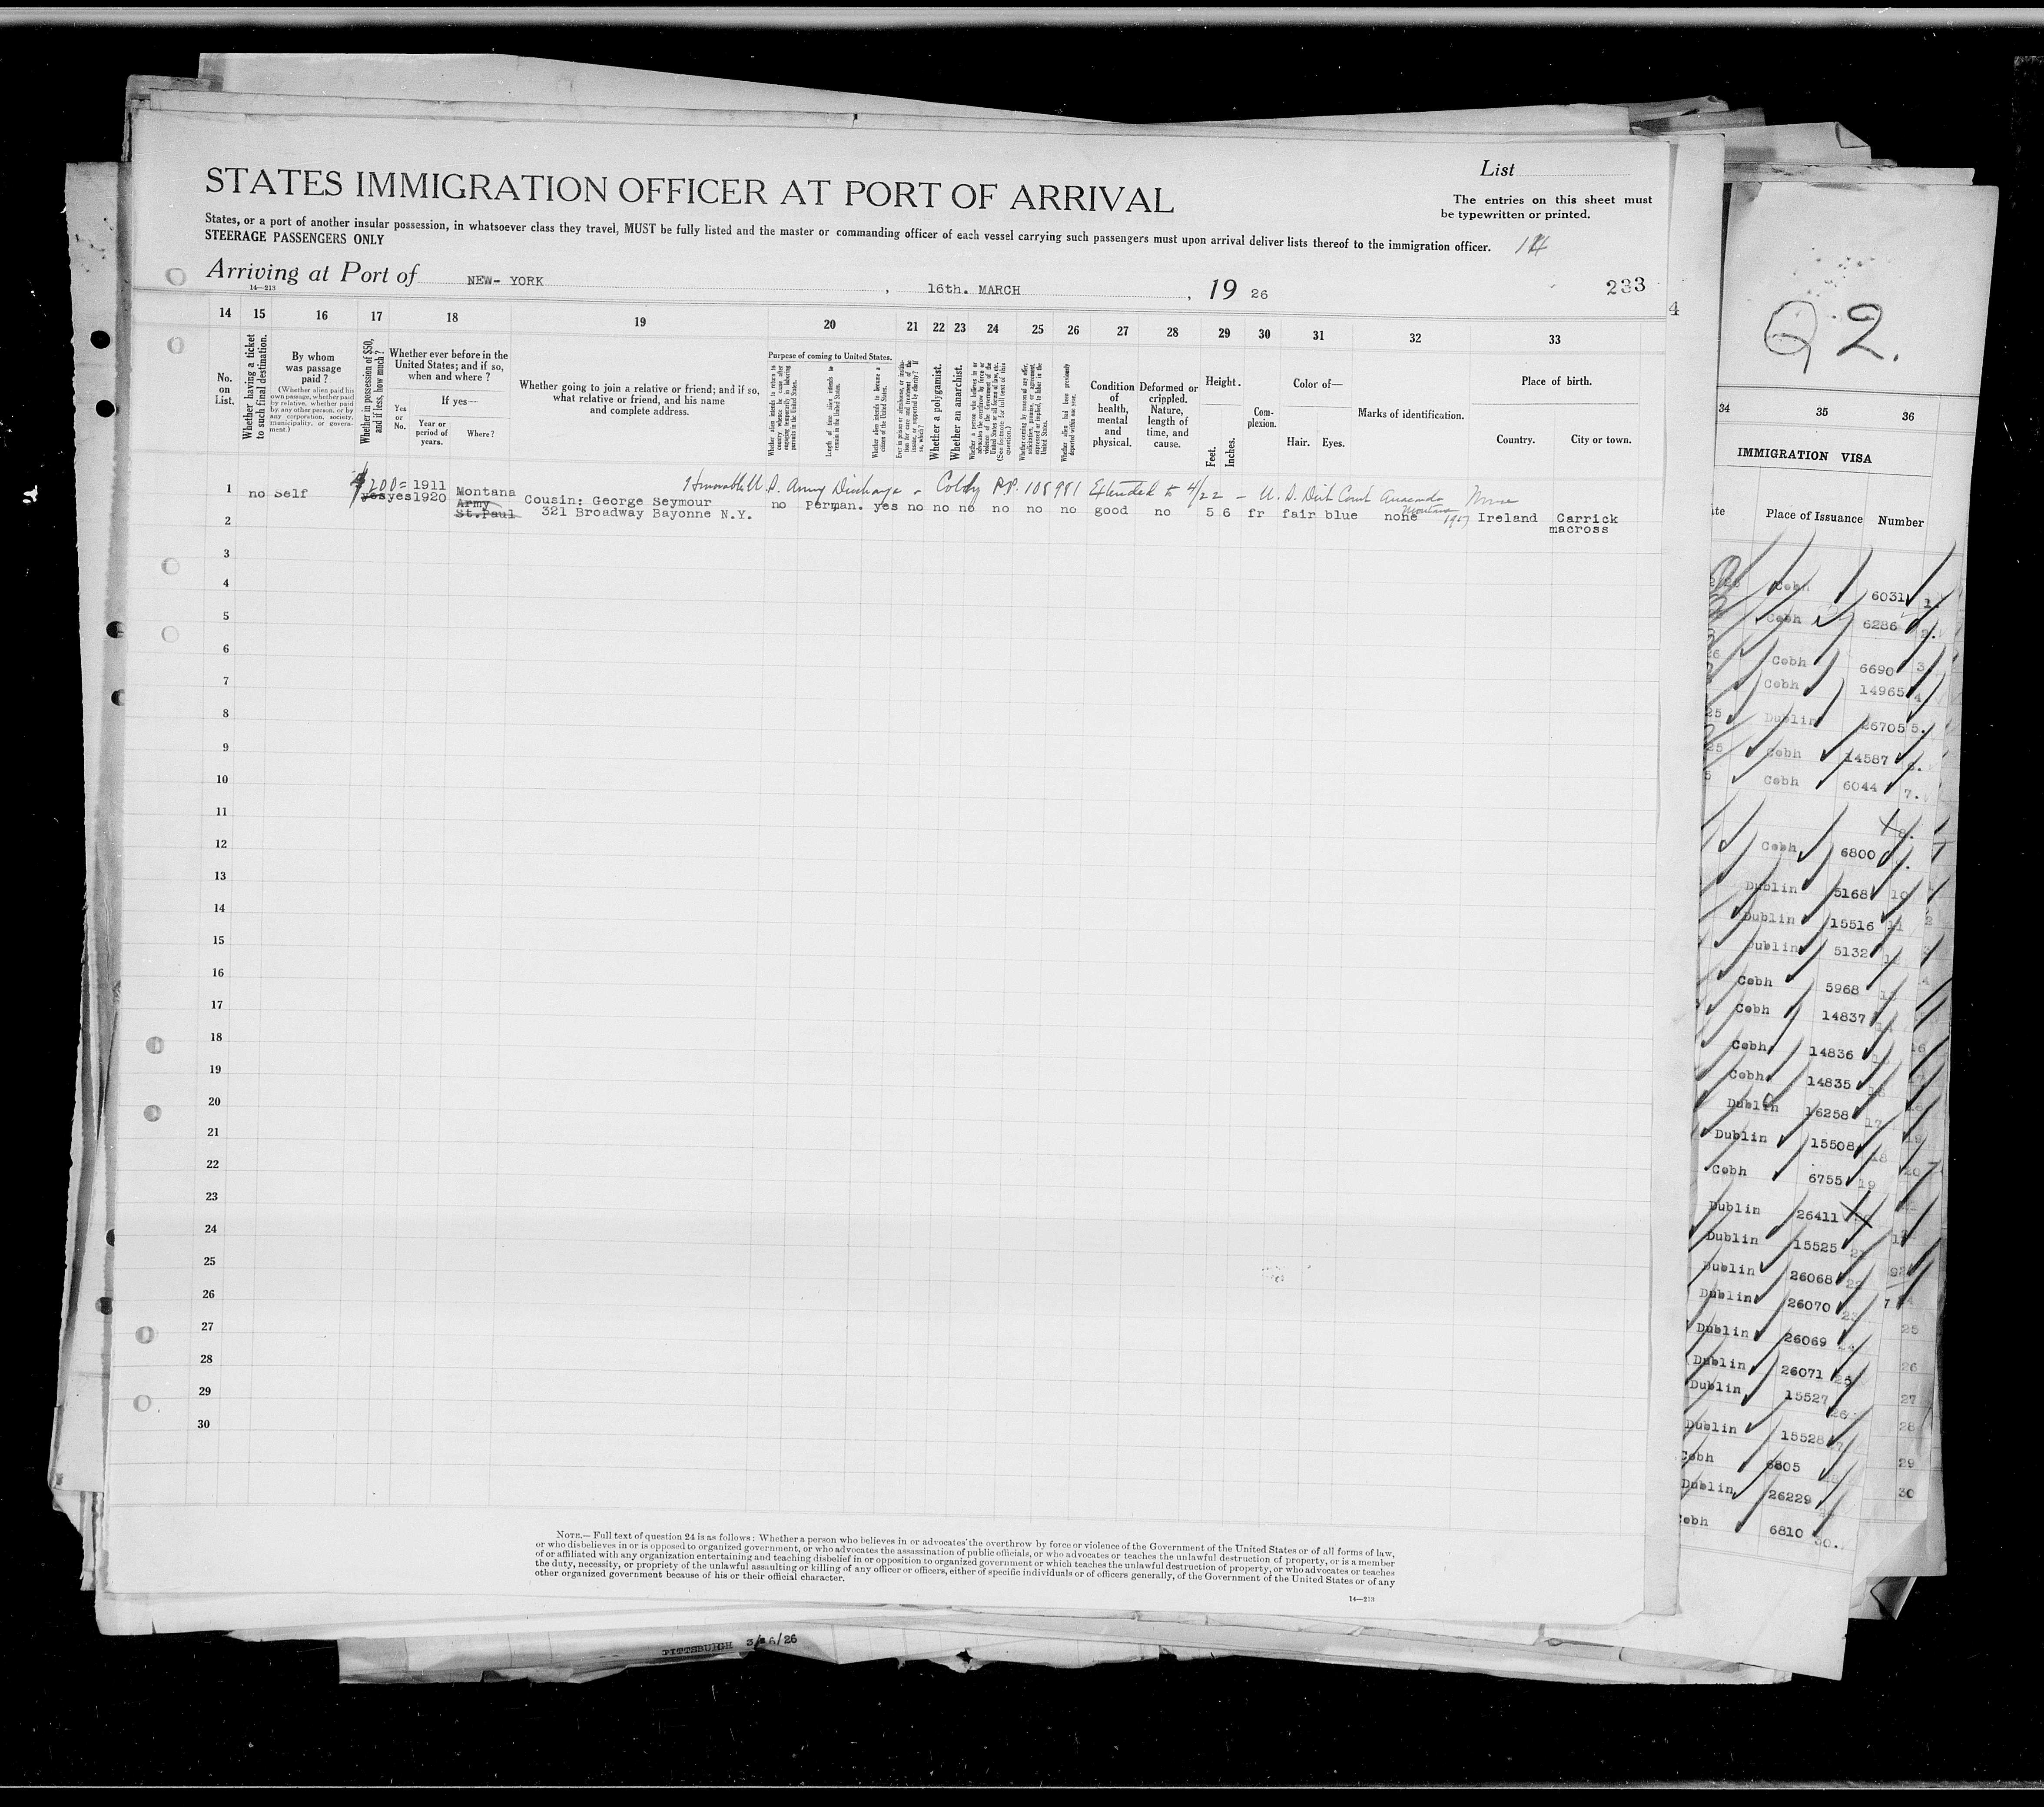 STATES IMMIGRATION OFFICER AT PORT OF ARRIVAL
List
The entries on this sheet must
be typewritten or printed.
States, or a port of another insular possession, in whatsoever class they travel, MUST be fully listed and the master or commanding officer of each vessel carrying such passengers must upon arrival deliver lists thereof to the immigration officer.
STEERAGE PASSENGERS ONLY
14
Arriving at Port of NEW- YORK , 16th. MARCH , 19 26
14—213
233
4
14 15 16 17 18 19 20 21 22 23 24 25 26 27 28 29 30 31 32 33
No. on List.
Whether having a ticket to such final destination.
By whom was passage paid?
(Whether alien paid his own passage, whether paid by relative, whether paid by any other person, or by any corporation, society, municipality, or government.)
Whether in possession of $50, and if less, how much?
Whether ever before in the United States; and if so, when and where?
If yes—
Yes or No.
Year or period of years.
Where?
Whether going to join a relative or friend; and if so, what relative or friend, and his name and complete address.
Purpose of coming to United States.
Length of time alien intends to remain in the United States.
Whether alien intends to become a citizen of the United States.
Whether a polygamist.
Whether an anarchist.
Condition of health, mental and physical.
Deformed or crippled. Nature, length of time, and cause.
Height.
Feet. Inches.
Complexion.
Color of—
Hair. Eyes.
Marks of identification.
Place of birth.
Country. City or town.
$200= 1911 Honorable U.S. Army Discharge - Colby P.P. 108981 Extended to 4/22 - U.S. Dist Court Anaconda
1 no Self yes yes 1920 Montana
Army Cousin: George Seymour no Perman. yes no no no no no no good no 5 6 fr fair blue none Ireland Carrick
St.Paul 321 Broadway Bayonne N.Y. macross
Montana
2
3
4
5
6
7
8
9
10
11
12
13
14
15
16
17
18
19
20
21
22
23
24
25
26
27
28
29
30
NOTE.—Full text of question 24 is as follows: Whether a person who believes in or advocates the overthrow by force or violence of the Government of the United States or of all forms of law,
or who disbelieves in or is opposed to organized government, or who advocates the assassination of public officials, or who advocates or teaches the unlawful destruction of property, or is a member
of or affiliated with any organization entertaining and teaching disbelief in or opposition to organized government or which teaches the unlawful destruction of property, or who advocates or teaches
the duty, necessity, or propriety of the unlawful assaulting or killing of any officer or officers, either of specific individuals or of officers generally, of the Government of the United States or of any
other organized government because of his or their official character.
14—213
PITTSBURGH 3/16/26
2.
34 35 36
IMMIGRATION VISA
Place of Issuance Number
Cobh 6031 1.
Cobh 6286 2.
Cobh 6690 3
Cobh 14965 4
Dublin 26705 5.
Cobh 14587
Cobh 6044 7.
Cobh 6800
Dublin 5168 10
Dublin 15516 11
Dublin 5132
Cobh 5968 13
Cobh 14837
Cobh 14836
Cobh 14835
Dublin 16258 17
Dublin 15508 18
Cobh 6755 19
Dublin 26411
Dublin 15525 21
Dublin 26068 22
Dublin 26070
Dublin 26069
Dublin 26071
Dublin 15527 26
Dublin 15528
Cobh 6805
Dublin 26229
Cobh 6810 30.
25
26
27
28
29
30